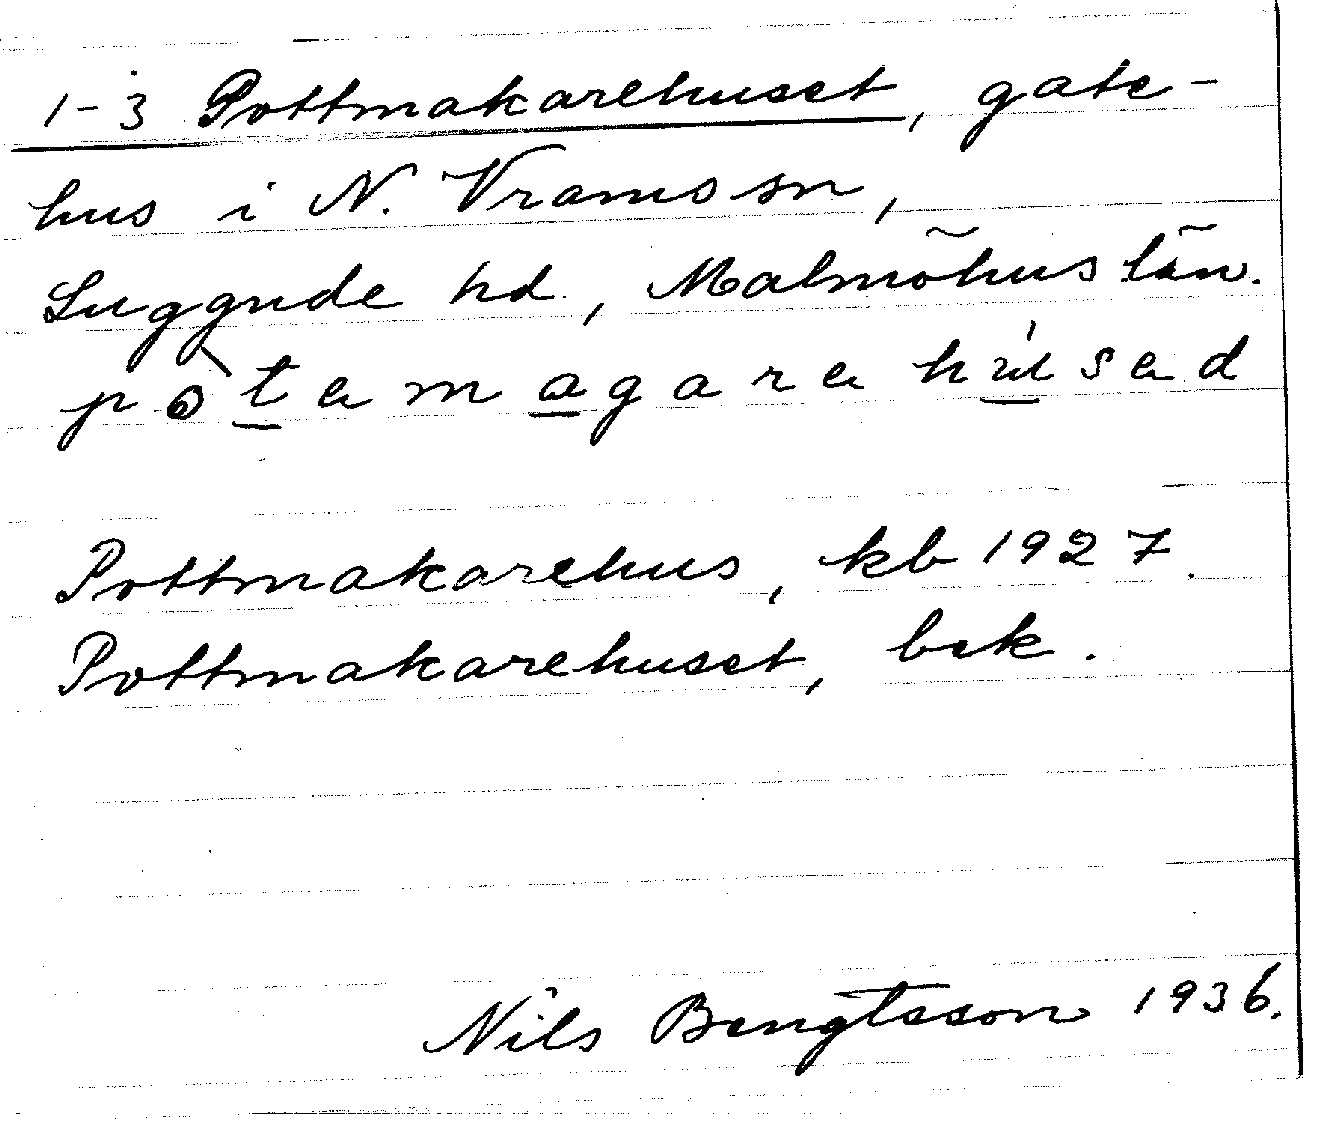 1-3 Pottmakarehuset, gate-
hus i N. Vrams sn,
Luggude hd., Malmöhus län.
pòtamagarahúsad
Pottmakarehus, kb 1927.
Pottmakarehuset, bek.
Nils Bengtsson 1936.